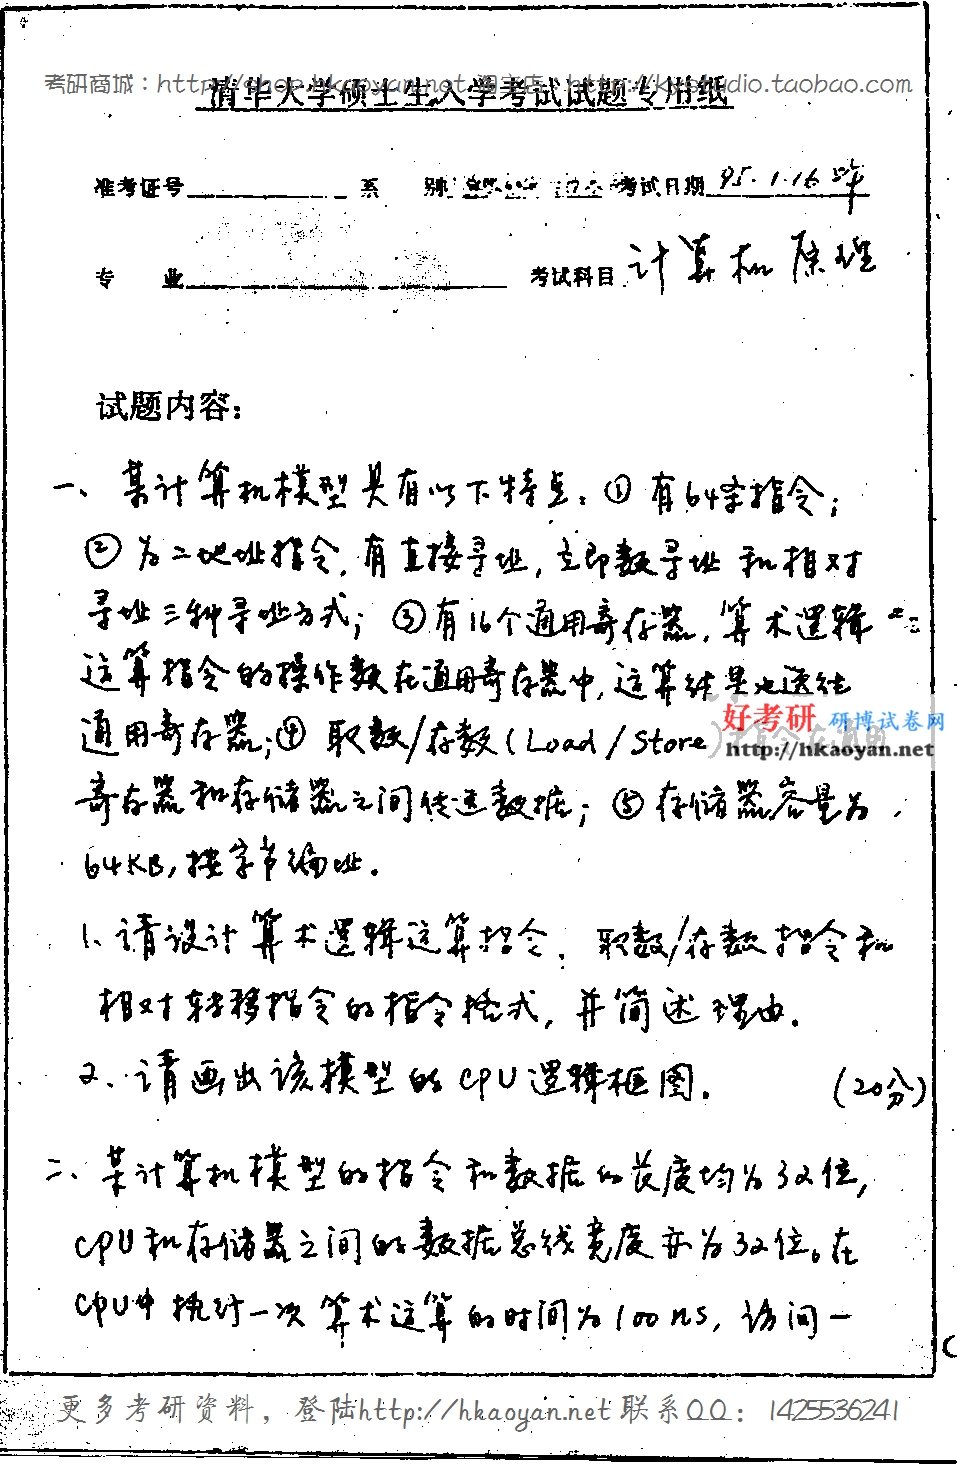 考研商城：http://shop.hkaoyan.net 淘宝店：http://kystudio.taobao.com
清华大学硕士生入学考试试题专用纸
准考证号 系 别 考试日期 95.1.16
专 业 考试科目 计算机原理
试题内容：
一、某计算机模型具有以下特点：①有64条指令；
②为二地址指令，有直接寻址，立即数寻址和相对
寻址三种寻址方式；③有16个通用寄存器，算术逻辑
运算指令的操作数在通用寄存器中，运算结果也送往
通用寄存器；④取数/存数（Load/Store）指令在通用
好考研 研博试卷网
http://hkaoyan.net
寄存器和存储器之间传送数据；⑤存储器容量为
64KB，按字节编址．
1、请设计算术逻辑运算指令、取数/存数指令和
相对转移指令的指令格式，并简述理由．
2、请画出该模型的CPU逻辑框图． （20分）
二、某计算机模型的指令和数据的长度均为32位，
CPU和存储器之间的数据总线宽度亦为32位。在
CPU中执行一次算术运算的时间为100ns，访问一
更多考研资料，登陆http://hkaoyan.net 联系QQ：1425536241